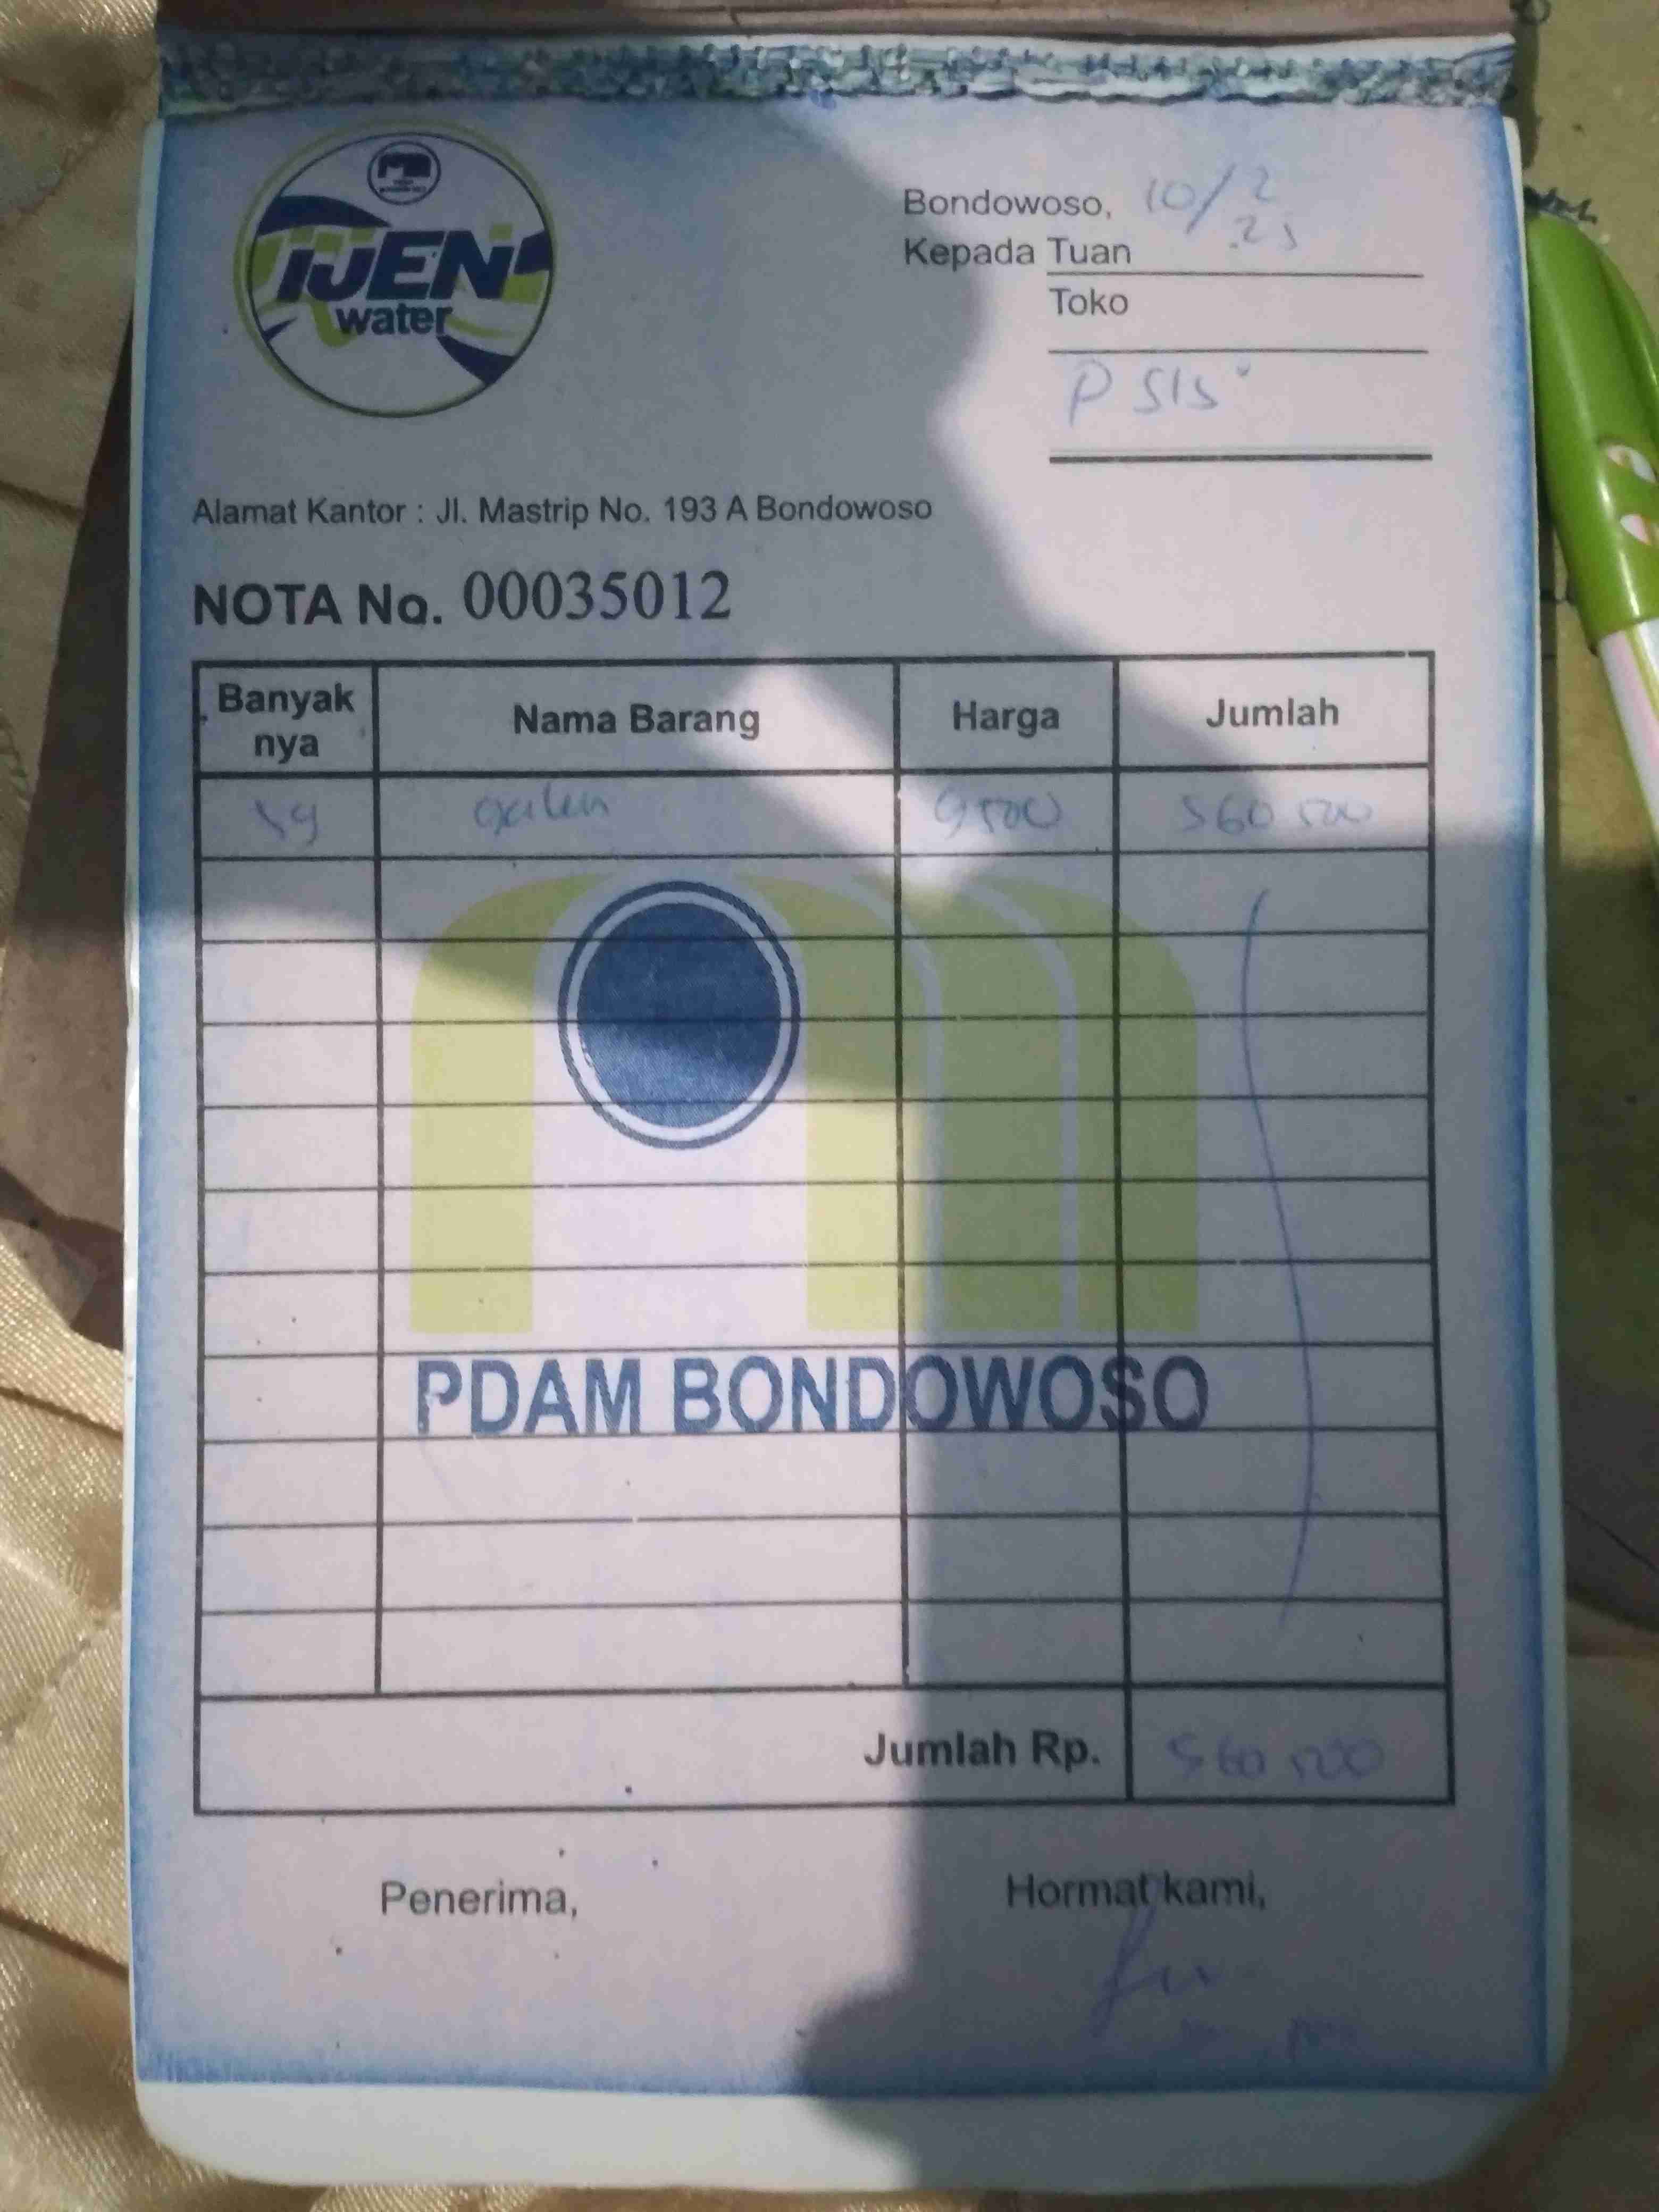 IJEN
water
Bondowoso, 10/2
.25
Kepada Tuan
Toko
P SIS
Alamat Kantor : Jl. Mastrip No. 193 A Bondowoso
NOTA No. 00035012
Banyak nya Nama Barang Harga Jumlah
59 galon 9500 560 500
PDAM BONDOWOSO
Jumlah Rp. 560 500
Penerima, Hormat kami,